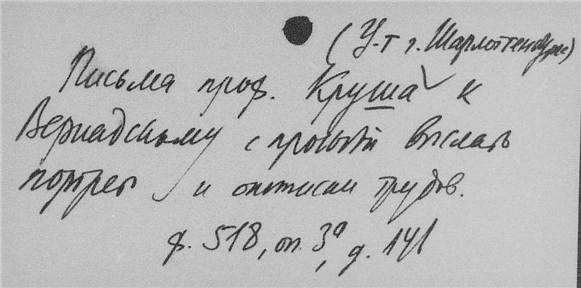 (У-т г. Шарлоттенбург)
Письма проф. Круша к
Вернадскому с просьбой выслать
портрет и оттиски трудов.
ф. 518, оп. 3а, д. 141